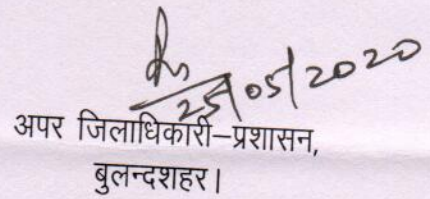 25/05/2020
अपर जिलाधिकारी–प्रशासन,
बुलन्दशहर।